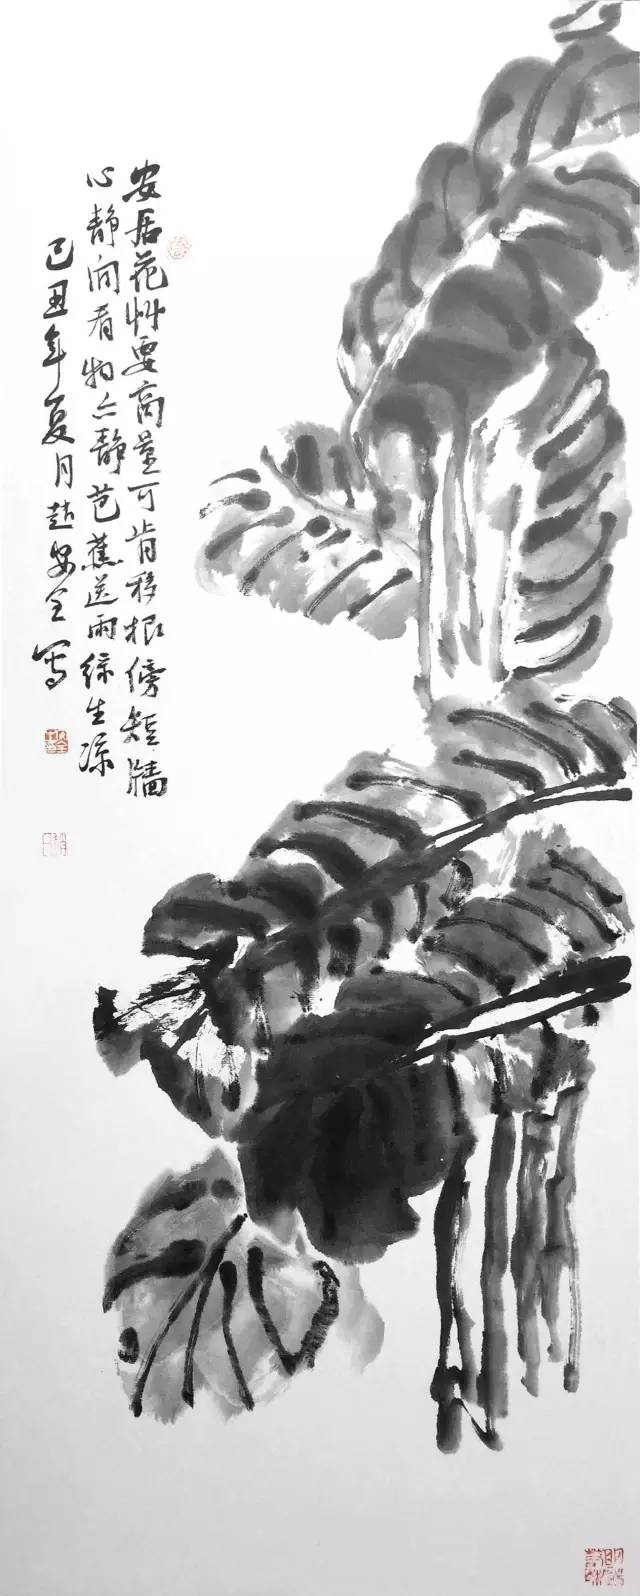 安居花艸要商量可肯移根傍短牆
心静间看物亦静芭蕉送雨绿生凉
己丑年夏月赵安全写